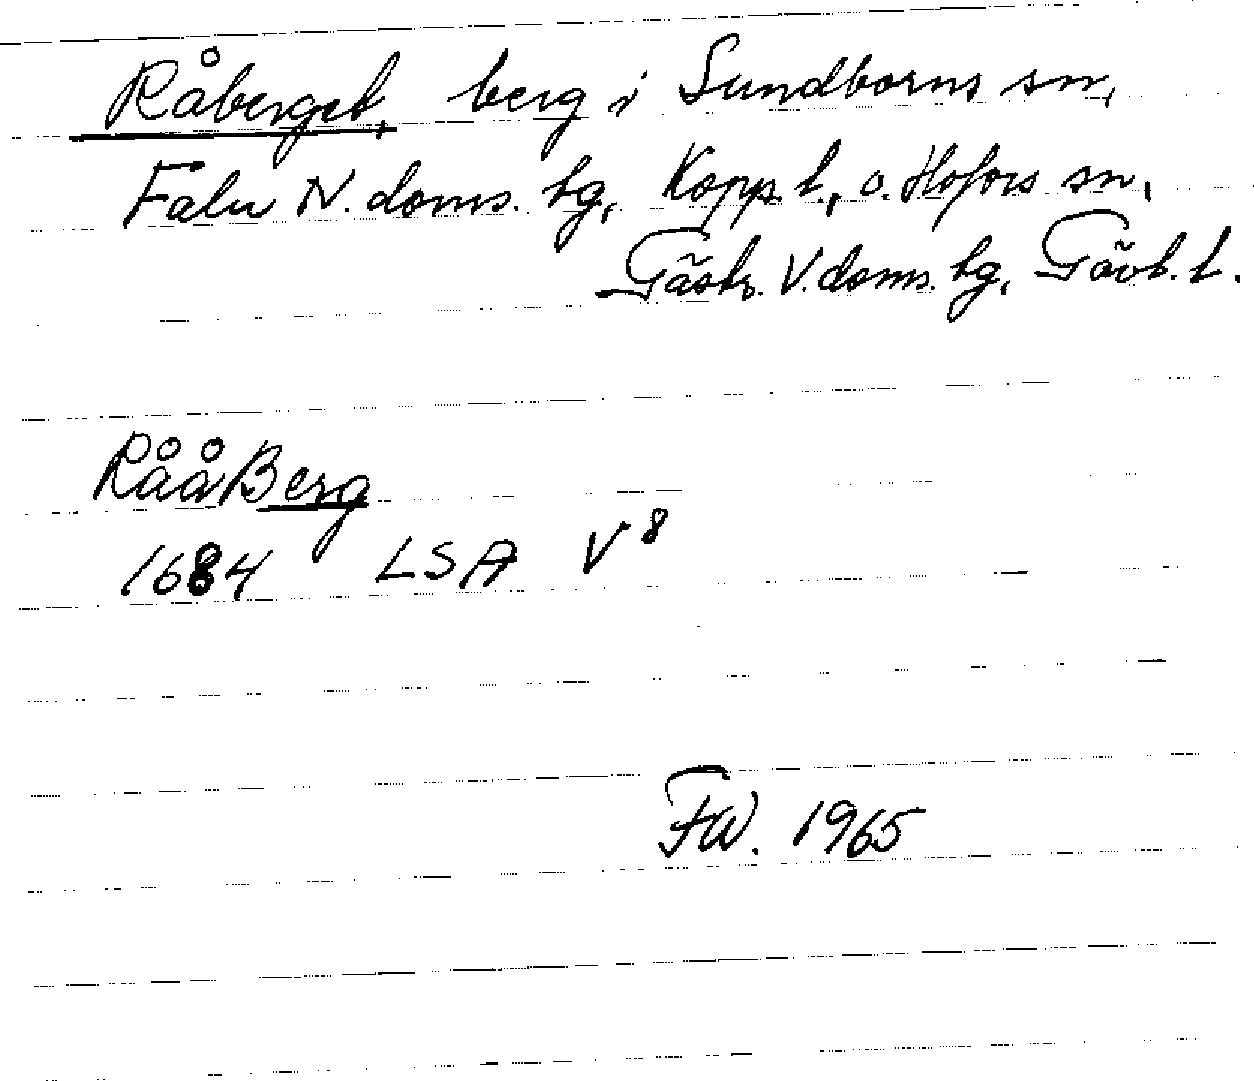 Råberget, berg i Sundborns sn,
Falu N. doms. tg, Kopp. l., o. Hofors sn,
Gästr. V. doms. tg, Gävl. l.
RååBerg
1684 LSA V 8
FW. 1965